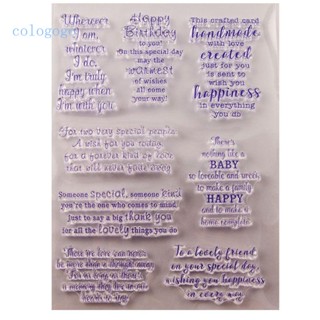 cologogo
Wherever
I am,
whatever
I do.
I'm truly
happy when
I'm with you.
Happy
Birthday
to you
On this special day
may the
warmest
of wishes
all come
your way!
This crafted card
handmade
with love
created
just for you
is sent to
wish you
happiness
in everything
you do
for two very special people
A wish for you today
for a forever kind of love
that will never fade away
Someone special, someone kind
you're the one who comes to mind
Just to say a big thank you
for all the lovely things you do
There's
nothing like a
BABY
so loveable and wee,
to make a family
HAPPY
and to make a
home complete.
Those we love can never
be more than a thought away
For as long as there's
a memory they live in our
hearts to stay
To a lovely friend
on your special day
wishing you happiness
in every way